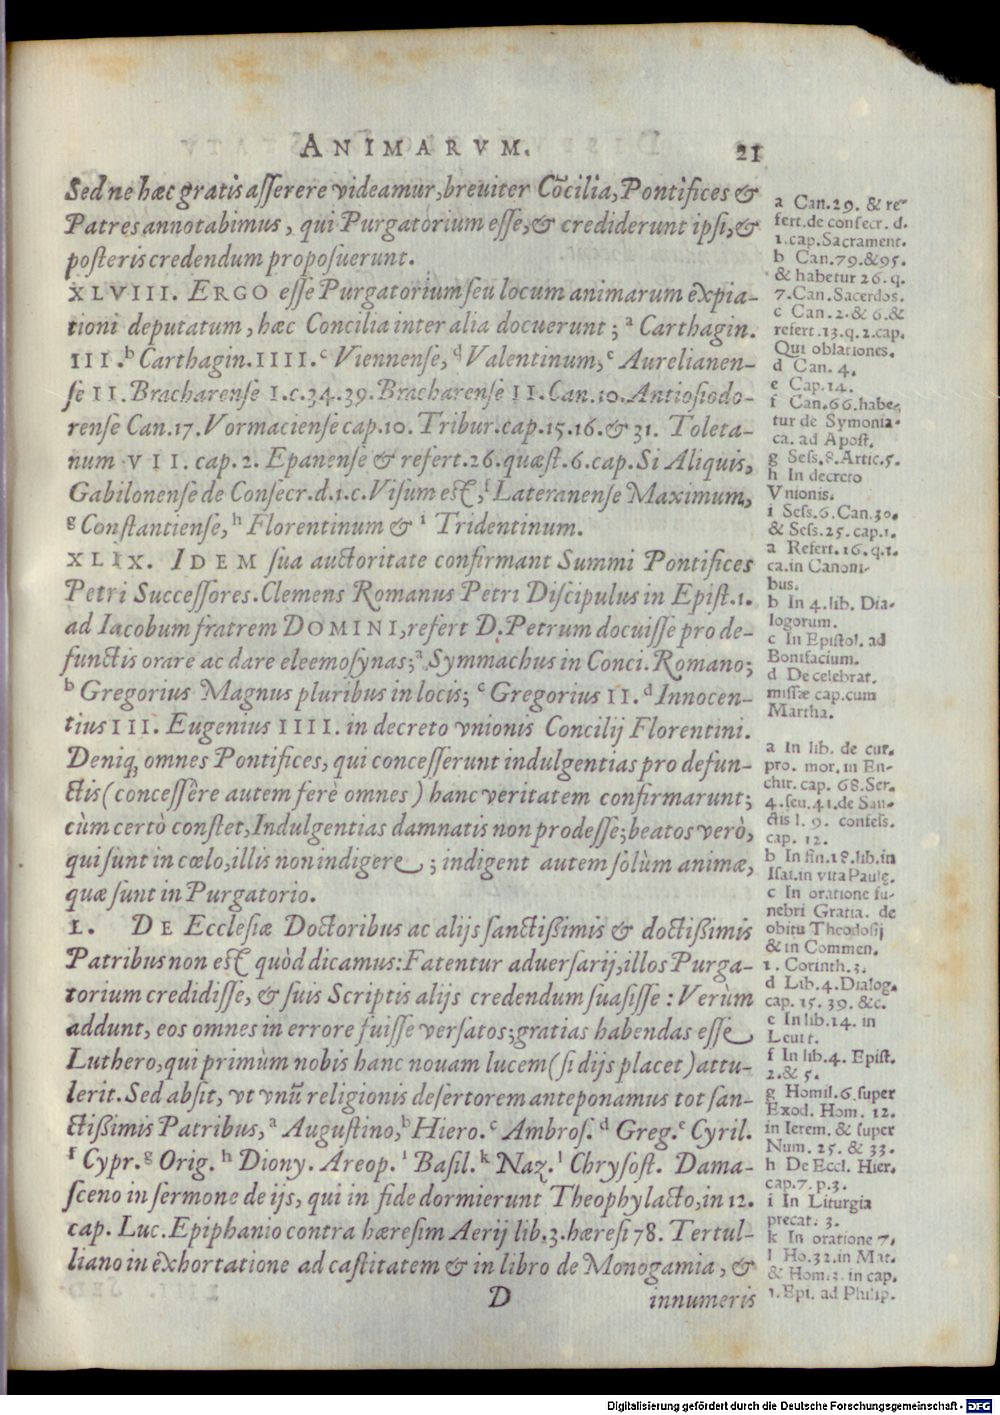 ANIMARVM. 21
Sed ne hæc gratis aſſerere videamur, breuiter Cõcilia, Pontifices &
Patres annotabimus, qui Purgatorium eſſe, & crediderunt ipſi, &
poſteris credendum propoſuerunt.
XLVIII. ERGO eſſe Purgatorium ſeu locum animarum expia-
tioni deputatum, hæc Concilia inter alia docuerunt; a Carthagin.
III. b Carthagin. IIII. c Viennenſe, d Valentinum, e Aurelianen-
ſe II. Bracharenſe I. c. 34. 39. Bracharenſe II. Can. 10. Antioſiodo-
renſe Can. 17. Vormacienſe cap. 10. Tribur. cap. 15. 16. & 31. Toleta-
num VII. cap. 2. Epanenſe & refert. 26. quæſt. 6. cap. Si Aliquis,
Gabilonenſe de Conſecr. d. 1. c. Viſum eſt, f Lateranenſe Maximum,
g Conſtantienſe, h Florentinum & i Tridentinum.
XLIX. IDEM ſua auctoritate confirmant Summi Pontifices
Petri Succeſſores. Clemens Romanus Petri Diſcipulus in Epiſt. 1.
ad Iacobum fratrem DOMINI, refert D. Petrum docuiſſe pro de-
functis orare ac dare eleemoſynas; a Symmachus in Conci. Romano;
b Gregorius Magnus pluribus in locis; c Gregorius II. d Innocen-
tius III. Eugenius IIII. in decreto vnionis Concilij Florentini.
Deniq; omnes Pontifices, qui conceſſerunt indulgentias pro defun-
ctis (conceſſêre autem ferè omnes) hanc veritatem confirmarunt;
cùm certò conſtet, Indulgentias damnatis non prodeſſe; beatos verò,
qui ſunt in cœlo, illis non indigere; indigent autem ſolùm animæ,
quæ ſunt in Purgatorio.
L. DE Eccleſiæ Doctoribus ac alijs ſanctißimis & doctißimis
Patribus non eſt quòd dicamus: Fatentur aduerſarij, illos Purga-
torium credidiſſe, & ſuis Scriptis alijs credendum ſuaſiſſe: Verùm
addunt, eos omnes in errore fuiſſe verſatos; gratias habendas eſſe
Luthero, qui primùm nobis hanc nouam lucem (ſi dijs placet) attu-
lerit. Sed abſit, vt vnũ religionis deſertorem anteponamus tot ſan-
ctißimis Patribus, a Auguſtino, b Hiero. c Ambroſ. d Greg. e Cyril.
f Cypr. g Orig. h Diony. Areop. i Baſil. k Naz. l Chryſoſt. Dama-
ſceno in ſermone de ijs, qui in fide dormierunt Theophylacto, in 12.
cap. Luc. Epiphanio contra hæreſim Aerij lib. 3. hæreſi 78. Tertul-
liano in exhortatione ad caſtitatem & in libro de Monogamia, &
D innumeris
a Can. 29. & re-
fert. de conſecr. d.
1. cap. Sacrament.
b Can. 79. & 95.
& habetur 26. q.
7. Can. Sacerdos.
c Can. 2. & 6. &
refert. 13. q. 2. cap.
Qui oblationes.
d Can. 4.
e Cap. 14.
f Can. 66. habe-
tur de Symonia-
ca. ad Apoſt.
g Seſs. 8. Artic. 5.
h In decreto
Vnionis.
i Seſs. 6. Can. 30.
& Seſs. 25. cap. 1.
a Refert. 16. q. 1.
ca. in Canoni-
bus.
b In 4. lib. Dia-
logorum.
c In Epiſtol. ad
Bonifacium.
d De celebrat.
miſſæ cap. cum
Martha.
a In lib. de cur.
pro. mor. in En-
chir. cap. 68. Ser.
4. ſeu. 41. de San-
ctis l. 9. confeſs.
cap. 12.
b In fin. 18. lib. in
Iſai. in vita Paulę.
c In oratione fu-
nebri Gratia. de
obitu Theodoſij
& in Commen.
1. Corinth. 3.
d Lib. 4. Dialog.
cap. 15. 39. &c.
e In lib. 14. in
Leuit.
f In lib. 4. Epiſt.
2. & 5.
g Homil. 6. ſuper
Exod. Hom. 12.
in Ierem. & ſuper
Num. 25. & 33.
h De Eccl. Hier.
cap. 7. p. 3.
i In Liturgia
precat. 3.
k In oratione 7.
l Ho. 32. in Mat.
& Hom. 3. in cap.
1. Epi. ad Philip.
Digitalisierung gefördert durch die Deutsche Forschungsgemeinschaft - DFG